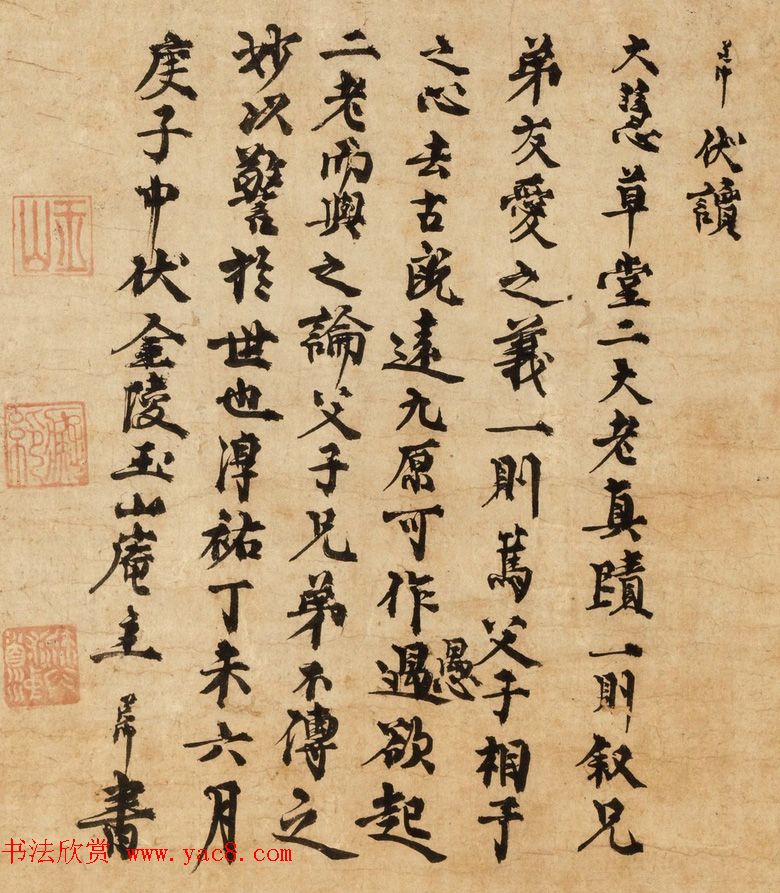 伏讀
大慧草堂二大老真蹟一則叙兄
弟友愛之義一則篤父子相予
之心去古既遠九原可作過愚欲起
二老而與之論父子兄弟不傳之
妙以警於世也淳祐丁未六月
庚子中伏金陵玉山庵主
書
玉山
书法欣赏 www.yac8.com